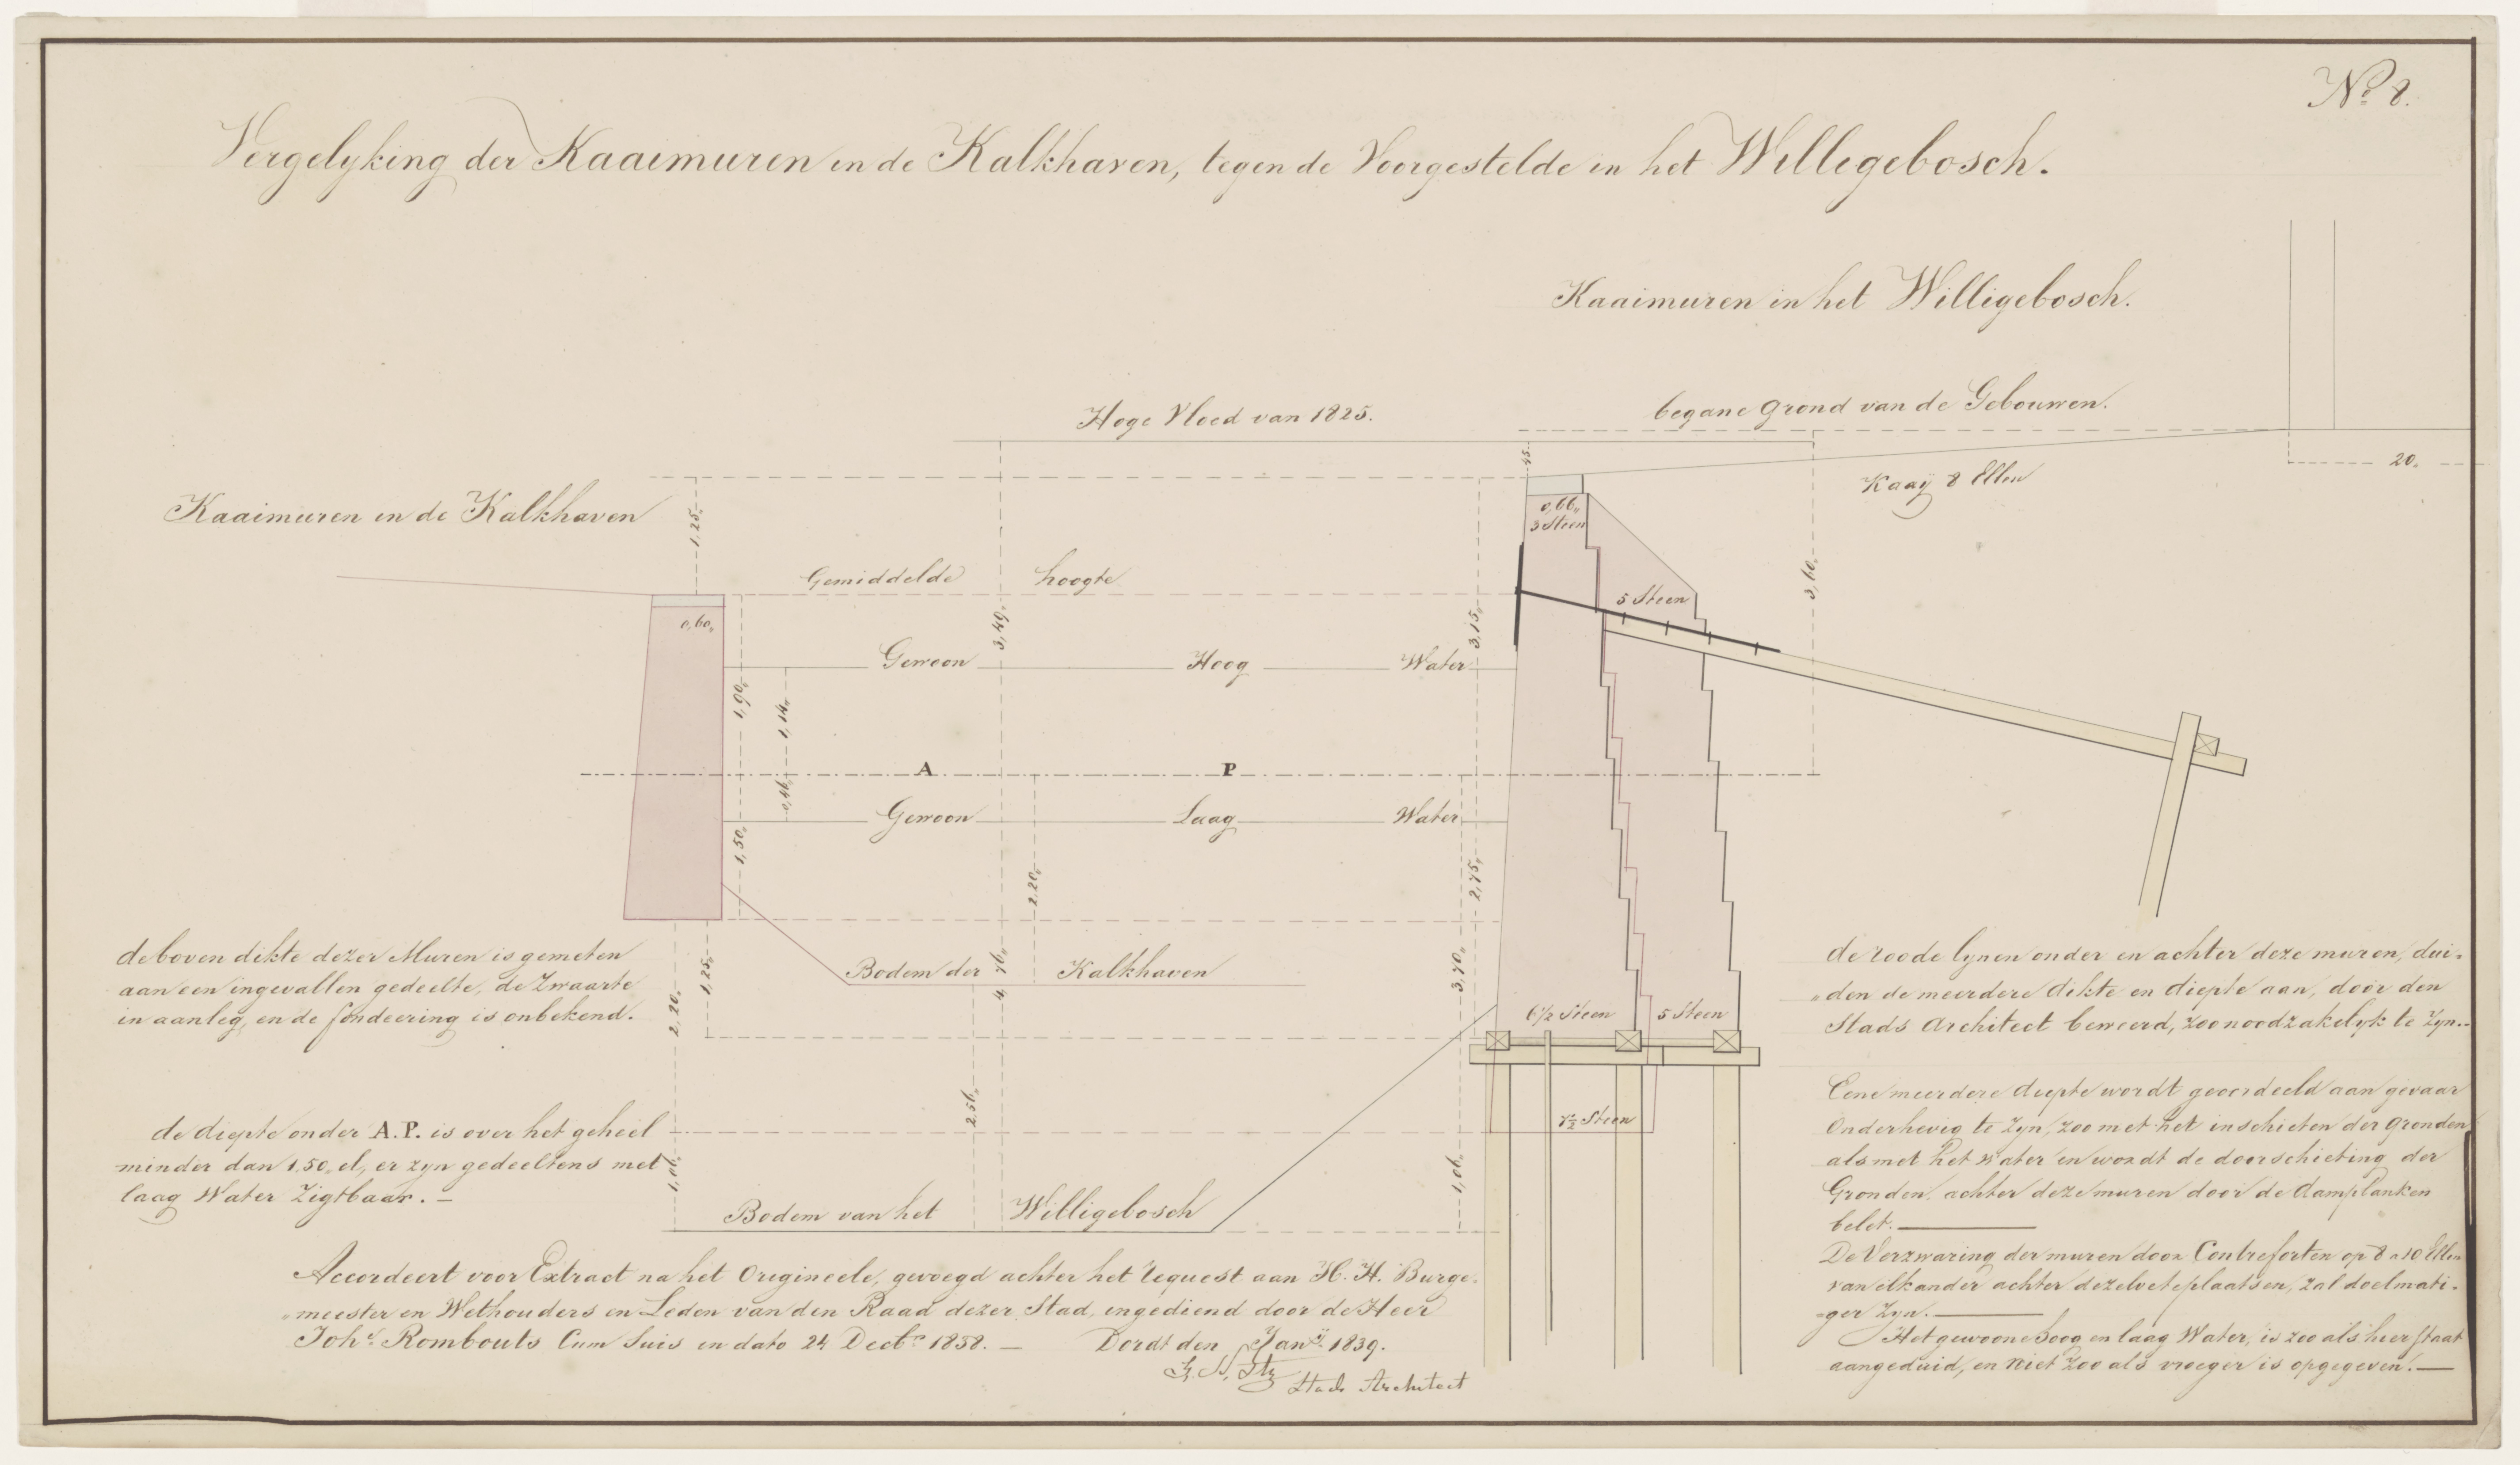 No. 8.
Vergelyking der Kaaimuren in de Kalkhaven, tegen de Voorgestelde in het Willegebosch.
Kaaimuren in het Willigebosch.
Hoge Vloed van 1825.
begane Grond van de Gebouwen.
45
20„
Kaaÿ 8 Ellen
Kaaimuren in de Kalkhaven
1,25„
0,66„
3 Steen
Gemiddelde hoogte
3,60„
5 Steen
0,60„
3,49„
3,15„
Gewoon Hoog Water
1,90„
1,14„
A P
0,46„
Gewoon Laag Water
1,50„
2,20„
2,75„
de boven dikte dezer Muren is gemeten
aan een ingevallen gedeelte, de Zwaarte
in aanleg, en de fondeering is onbekend.
1,25„
2,20„
Bodem der Kalkhaven
4,76„
3,70„
6½ Steen
5 Steen
de roode lynen onder en achter deze muren, dui„
„den de meerdere dikte en diepte aan, door den
Stads Architect beweerd, zoo noodzakelyk te Zyn.-
2,56„
7½ Steen
de diepte onder A.P. is over het geheel
minder dan 1,50„ el, er zyn gedeeltens met
laag Water Zigtbaar. –
1,06„
1,06„
Bodem van het Willigebosch
Eene meerdere diepte wordt geoordeeld aan gevaar
Onderhevig te Zyn, zoo met het inschieten der Gronden
als met het Water en wordt de doorschieting der
Gronden, achter deze muren door de damplanken
belet. —
De Verzwaring der muren door Contreforten op 8 a 10 Ellen
van elkander achter dezelve te plaatsen, zal doelmati-
-ger Zyn. —
Het gewoone hoog en laag Water, is zoo als hier staat
aangeduid, en niet Zoo als vroeger is opgegeven. —
Accordeert voor Extract na het Origineele, gevoegd achter het Request aan H. H. Burge„
„meester en Wethouders en Leden van den Raad dezer Stad, ingediend door de Heer
Johs. Rombouts Cum Suis in dato 24 Decbr. 1838. — Dordt den Jany. 1839.
Stads Architect